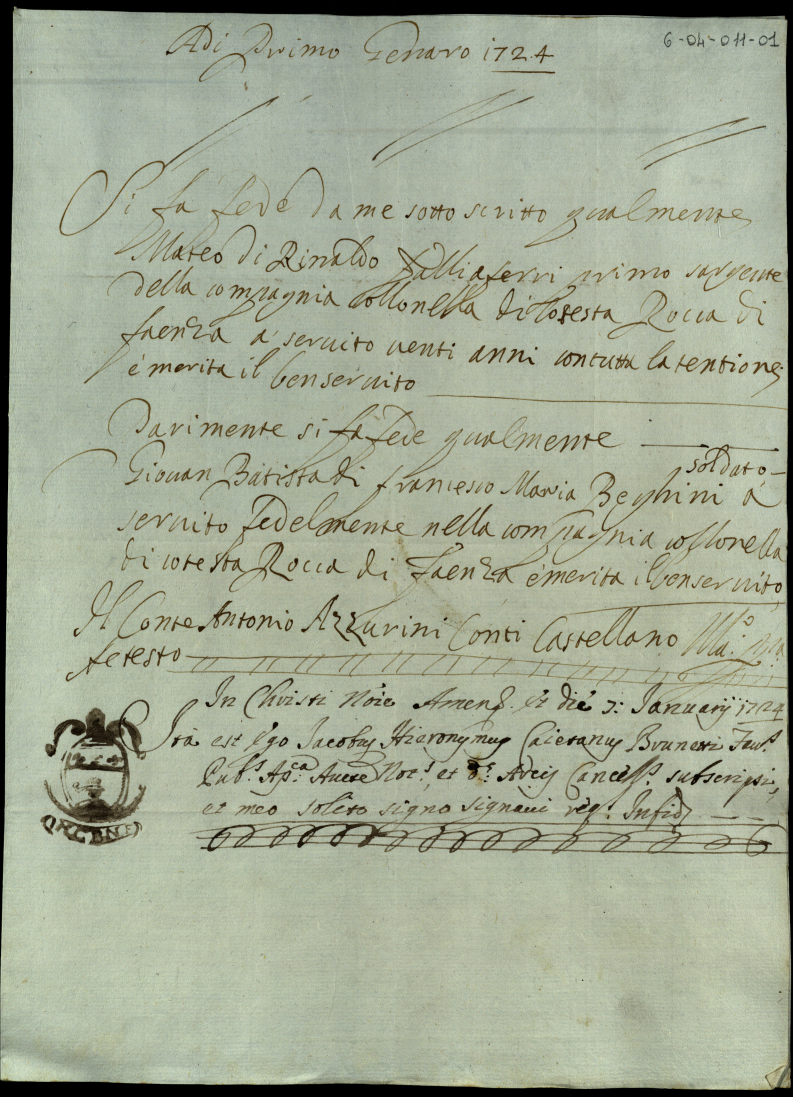 6-04-011-01
Adi Primo Genaro 1724
Si fa fede da me sotto scritto qualmente
Mateo di Rinaldo Talliaferri primo sargente
della compagnia collonella di cotesta Rocca di
faenza a servito venti anni con tutta la tentione
é merita il benservito
Parimente si fa fede qualmente
soldato
Giovan Batista di francesco Maria Beghini á
servito fedelmente nella compagnia collonella
di cotesta Rocca di Faenza é merita il benservito
Il Conte Antonio Azzurini Conti Castellano
Atesto
In Christi Nõie Amen. Et dié 7: Januarij 1724
Ità est Ego Jacobus Hieronymus Caietanus Brunetti Fav.s
Pub.s Ap.ca Aucte Not.s, et d.e Arcis Cancell.s subscripsi,
et meo solito signo signavi req.s In fid